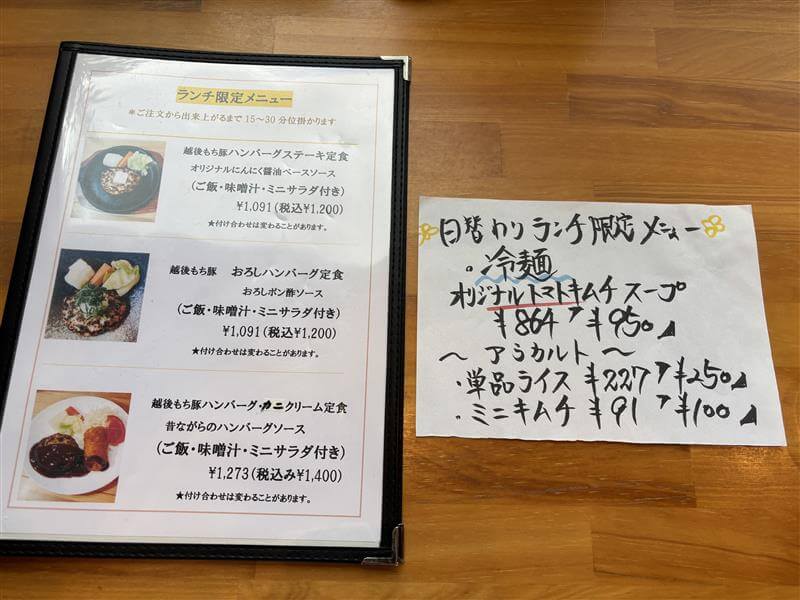 ランチ限定メニュー
＊ご注文から出来上がるまで15〜30分位掛かります
越後もち豚ハンバーグステーキ定食
オリジナルにんにく醬油ベースソース
(ご飯・味噌汁・ミニサラダ付き)
¥1,091(税込¥1,200)
★付け合わせは変わることがあります。
越後もち豚 おろしハンバーグ定食
おろしポン酢ソース
(ご飯・味噌汁・ミニサラダ付き)
¥1,091(税込¥1,200)
★付け合わせは変わることがあります。
越後もち豚ハンバーグ・カニクリーム定食
昔ながらのハンバーグソース
(ご飯・味噌汁・ミニサラダ付き)
¥1,273(税込み¥1,400)
★付け合わせは変わることがあります。
日替わりランチ限定メニュー
・冷麺
オリジナルトマトキムチスープ
¥864 ¥950
〜アラカルト〜
・単品ライス ¥227 ¥250
・ミニキムチ ¥91 ¥100